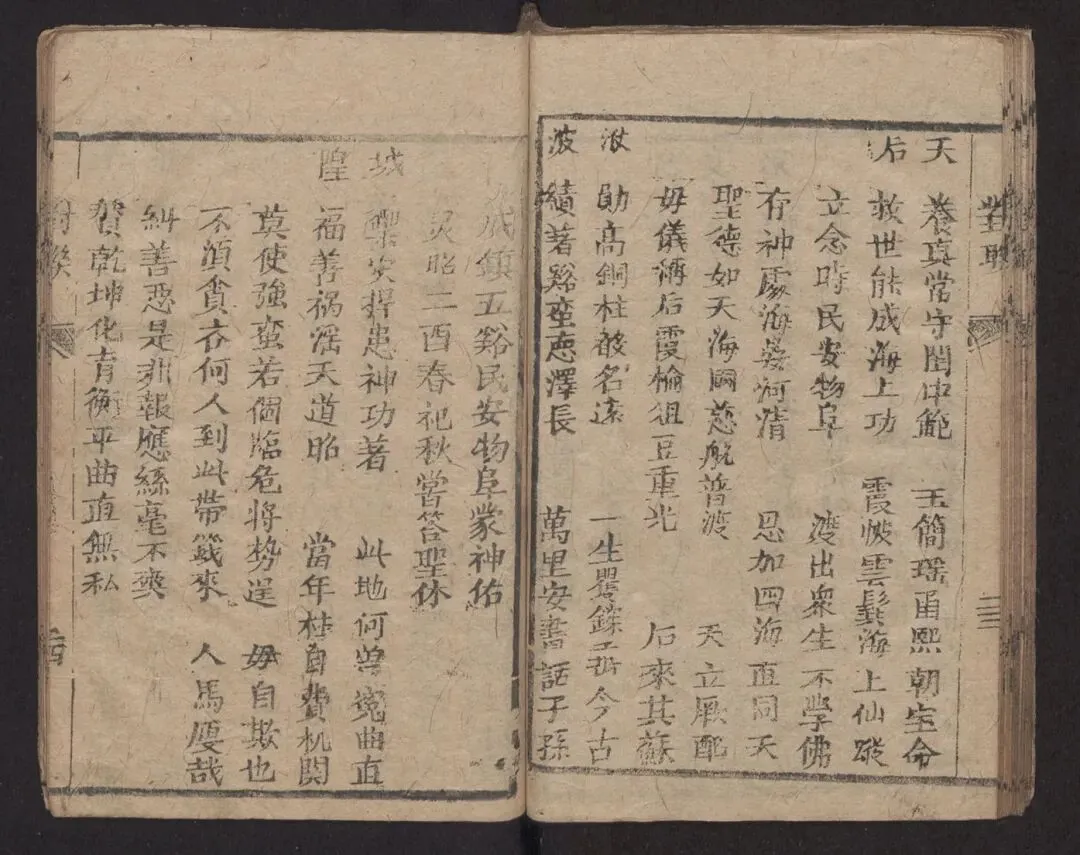 對聯
天 養真常守閨中範 玉簡瑤函熙朝宝命
后 救世能成海上功 霞帔雲鬟海上仙蹤
立念時民安物阜 渡出衆生不學佛
存神處海晏河清 恩加四海直同天
聖德如天海國慈航普渡 天立厥配
母儀稱后霞榆俎豆重光 后來其蘇
伏 勛高銅柱敲名遠 一生矍鑠于今古
波 績著谿蛮悳澤長 萬里安書話子孫
威鎮五谿民安物阜蒙神佑
灵昭二酉春祀秋嘗答聖休
城 禦灾捍患神功著 此地何曾寃曲直
隍 福善禍滛天道昭 當年枉自費机関
莫使強蛮若個臨危將势逞 毋自欺也
不須貪夯何人到此帶錢來 人焉廋哉
糾善恶是非報應絲毫不爽
賛乾坤化育衡平曲直無私
對聯